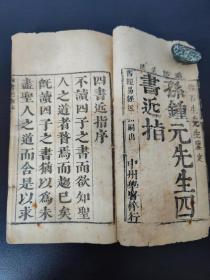 先生鑒定
孫鍾元先生四
書近指
嗣出
中州
梓行
四書近指序
不讀四子之書而欲知聖
人之道者瞀焉而趨已矣
既讀四子之書猶以為未
盡聖人之道而舍是以求